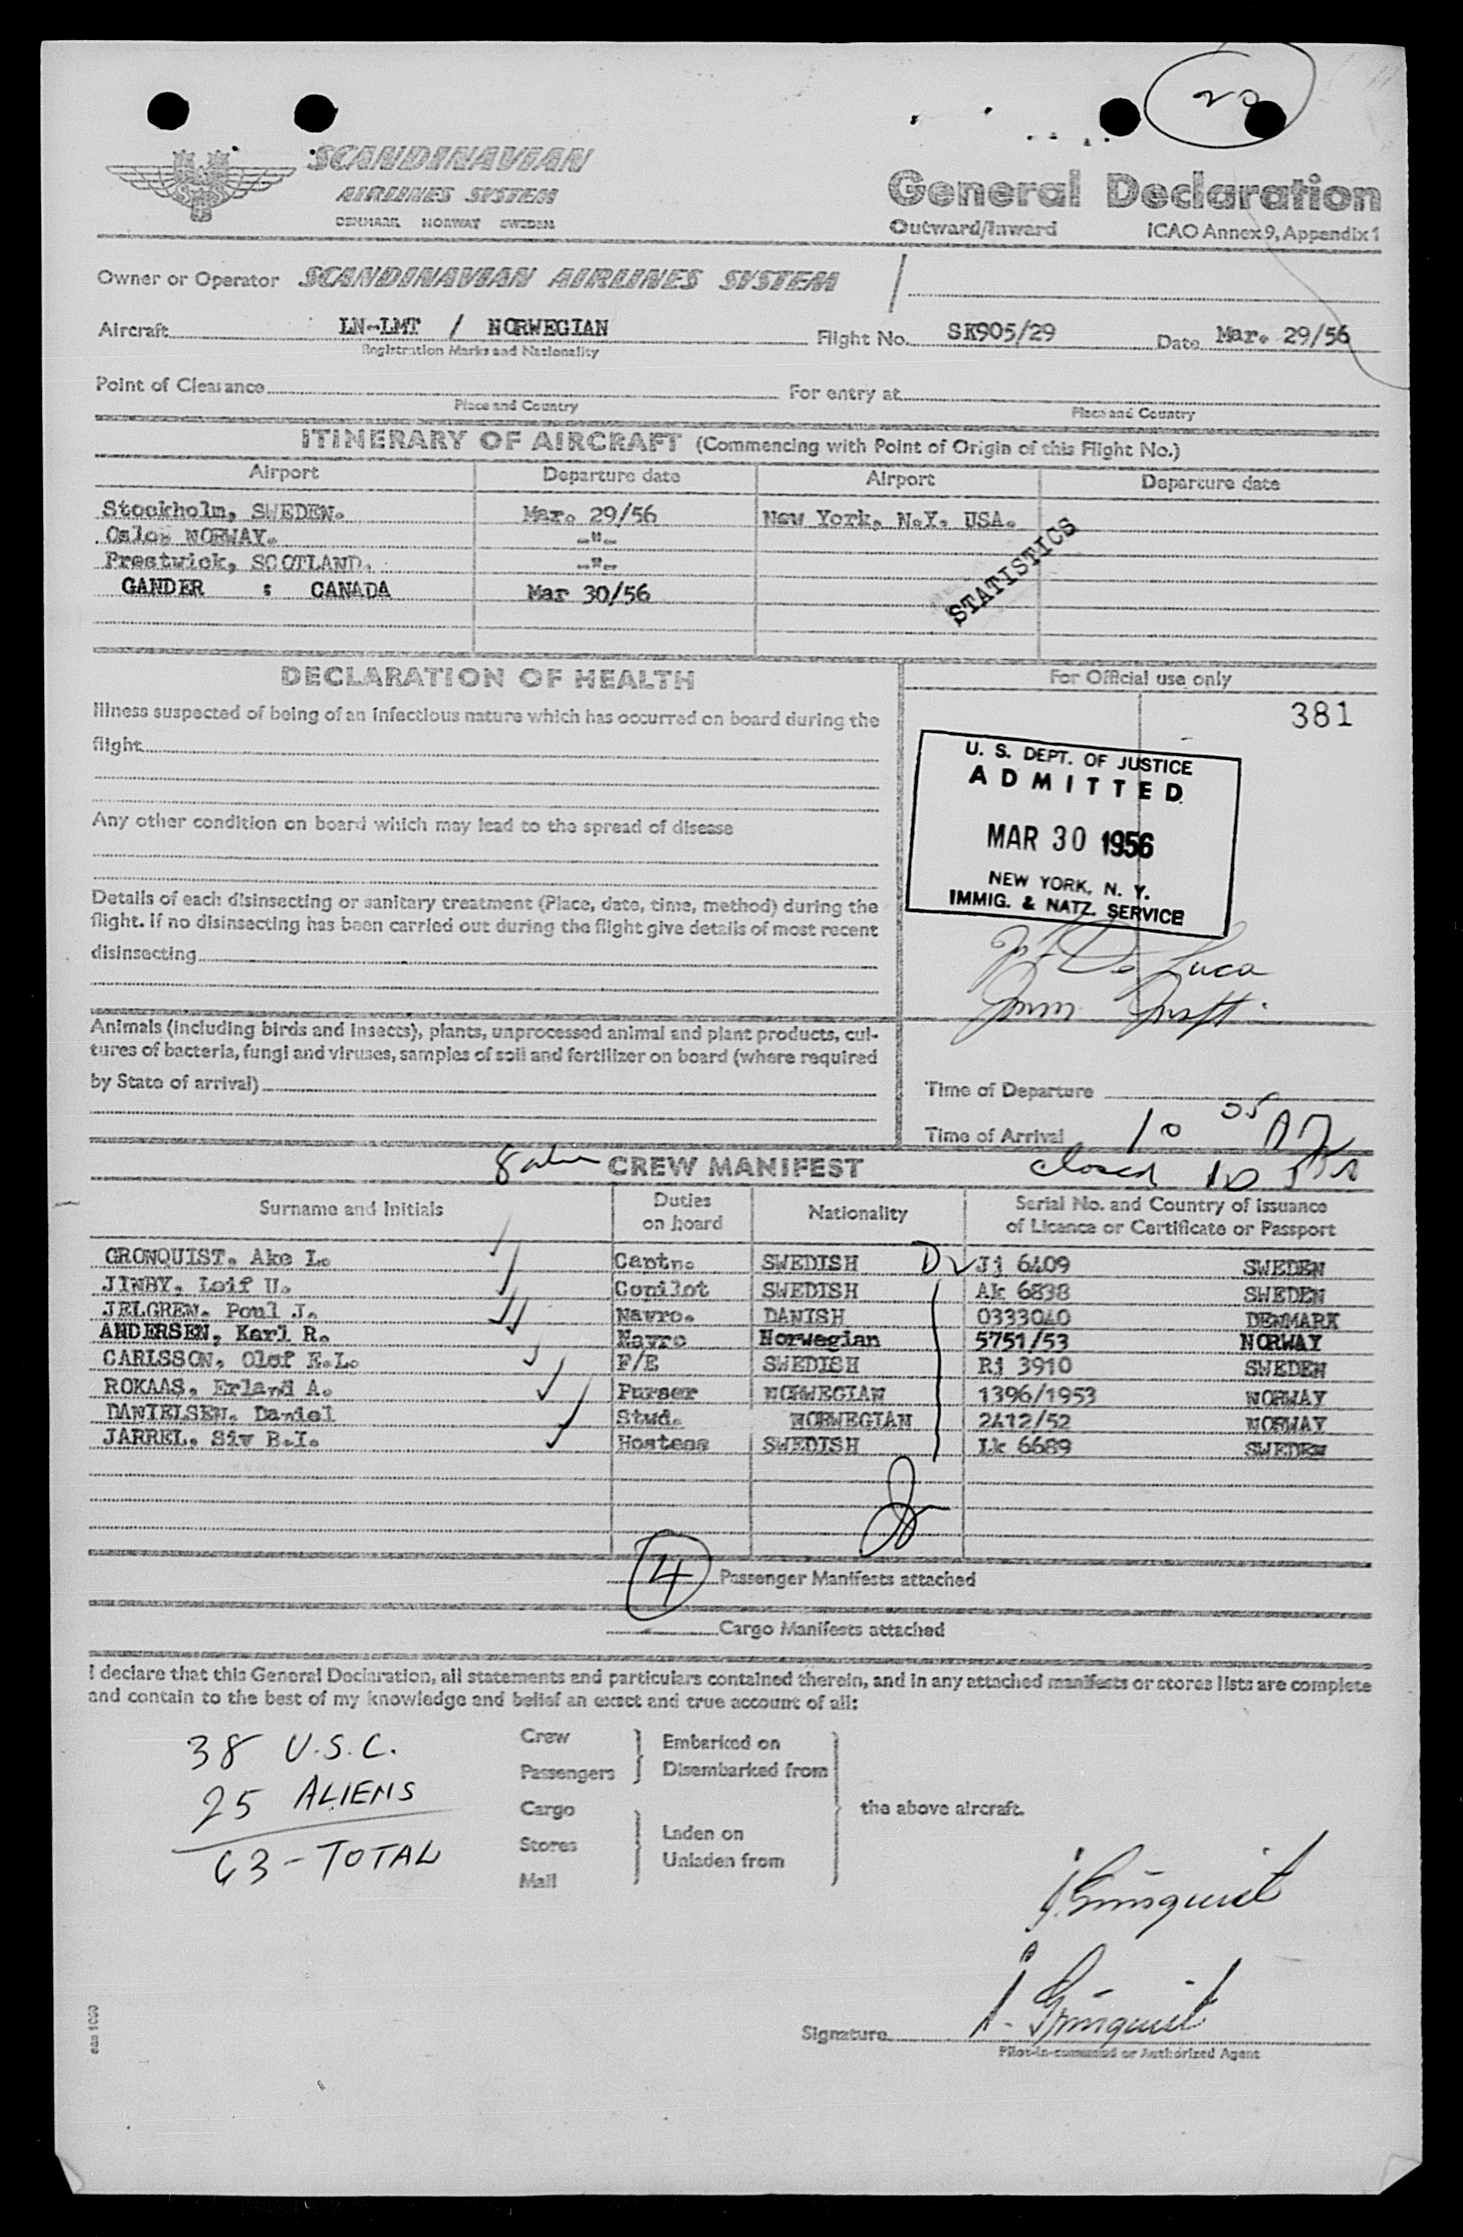 20
SCANDINAVIAN
AIRLINES SYSTEM
DENMARK NORWAY SWEDEN
General Declaration
Outward/Inward ICAO Annex 9, Appendix 1
Owner or Operator SCANDINAVIAN AIRLINES SYSTEM /
Aircraft LN-LMT / NORWEGIAN Flight No. SK905/29 Date Mar. 29/56
Registration Marks and Nationality
Point of Clearance For entry at
Place and Country Place and Country
ITINERARY OF AIRCRAFT (Commencing with Point of Origin of this Flight No.)
Airport Departure date Airport Departure date
Stockholm, SWEDEN. Mar. 29/56 New York, N.Y. USA.
Oslo: NORWAY. -"-
Prestwick, SCOTLAND. -"-
GANDER : CANADA Mar 30/56
STATISTICS
DECLARATION OF HEALTH
For Official use only
381
Illness suspected of being of an infectious nature which has occurred on board during the
flight
Any other condition on board which may lead to the spread of disease
Details of each disinsecting or sanitary treatment (Place, date, time, method) during the
flight. If no disinsecting has been carried out during the flight give details of most recent
disinsecting
Animals (including birds and insects), plants, unprocessed animal and plant products, cul-
tures of bacteria, fungi and viruses, samples of soil and fertilizer on board (where required
by State of arrival)
U. S. DEPT. OF JUSTICE
ADMITTED
MAR 30 1956
NEW YORK, N. Y.
IMMIG. & NATZ. SERVICE
De Luca
Imm
Time of Departure
Time of Arrival 10 05 A
closed 10
CREW MANIFEST
Surname and Initials Duties on board Nationality Serial No. and Country of issuance
of Licence or Certificate or Passport
GRONQUIST. Ake L. Captn. SWEDISH Jj 6409 SWEDEN
JINBY. Leif U. Copilot SWEDISH Ak 6838 SWEDEN
JELGREN. Poul J. Navro. DANISH 0333040 DENMARK
ANDERSEN, Karl R. Navro Norwegian 5751/53 NORWAY
CARLSSON, Olof E.L. F/E SWEDISH Rj 3910 SWEDEN
ROKAAS. Erland A. Purser NORWEGIAN 1396/1953 NORWAY
DANIELSEN. Daniel Stud. NORWEGIAN 2412/52 NORWAY
JARREL. Siv B.I. Hostess SWEDISH Lk 6689 SWEDEN
4 Passenger Manifests attached
Cargo Manifests attached
I declare that this General Declaration, all statements and particulars contained therein, and in any attached manifests or stores lists are complete
and contain to the best of my knowledge and belief an exact and true account of all:
38 U.S.C.
25 ALIENS
63 - TOTAL
Crew
Passengers
Embarked on
Disembarked from
Cargo
Stores
Mail
Laden on
Unladen from
the above aircraft.
Grönquist
Signature A. Grönquist
Pilot-in-command or Authorized Agent